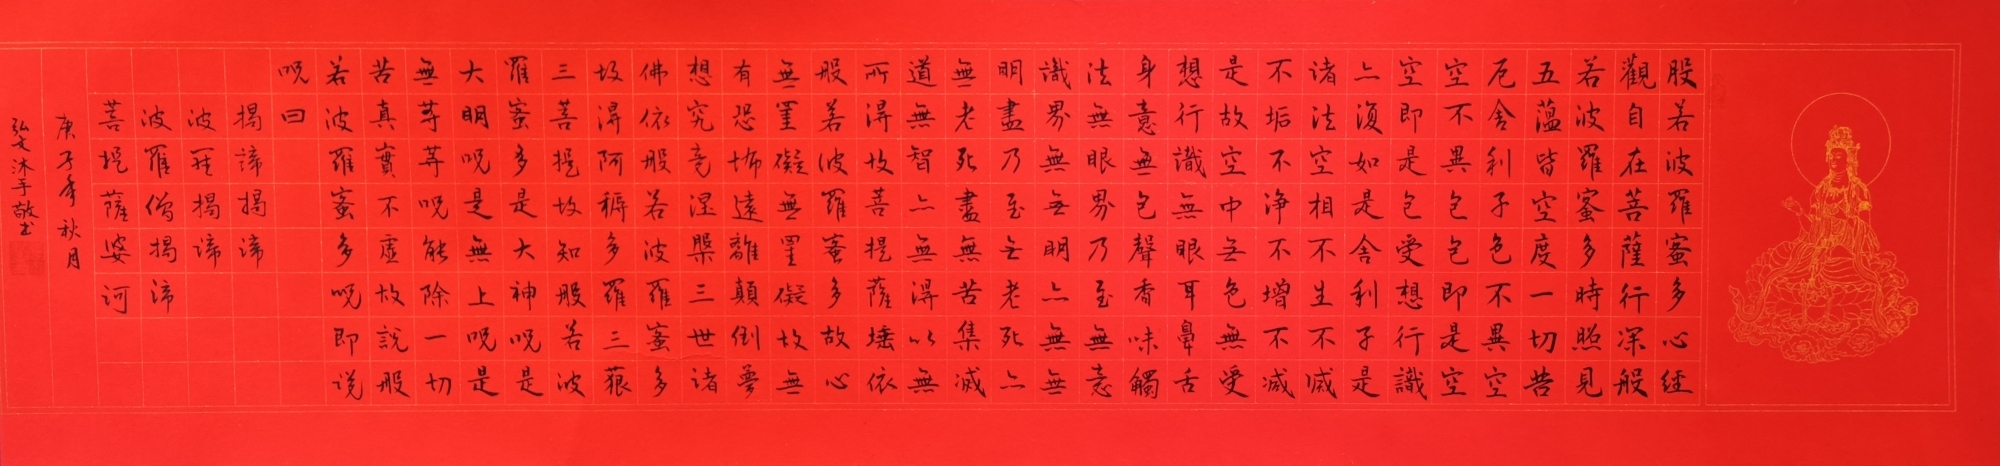 般若波羅蜜多心經
觀自在菩薩行深般
若波羅蜜多時照見
五蘊皆空度一切苦
厄舍利子色不異空
空不異色色即是空
空即是色受想行識
亦復如是舍利子是
诸法空相不生不滅
不垢不净不增不减
是故空中无色無受
想行識無眼耳鼻舌
身意無色聲香味觸
法無眼界乃至無意
識界無无明亦無無
明盡乃至无老死亦
無老死盡無苦集滅
道無智亦無得以無
所得故菩提薩埵依
般若波羅蜜多故心
無罣礙無罣礙故無
有恐怖遠離顛倒夢
想究竟涅槃三世诸
佛依般若波羅蜜多
故得阿耨多羅三藐
三菩提故知般若波
羅蜜多是大神呪是
大明呪是無上呪是
無等等呪能除一切
苦真實不虛故說般
若波羅蜜多呪即说
呪曰
揭諦揭諦
波罗揭諦
波羅僧揭谛
菩提薩婆訶
庚子年秋月
弘文沐手敬书